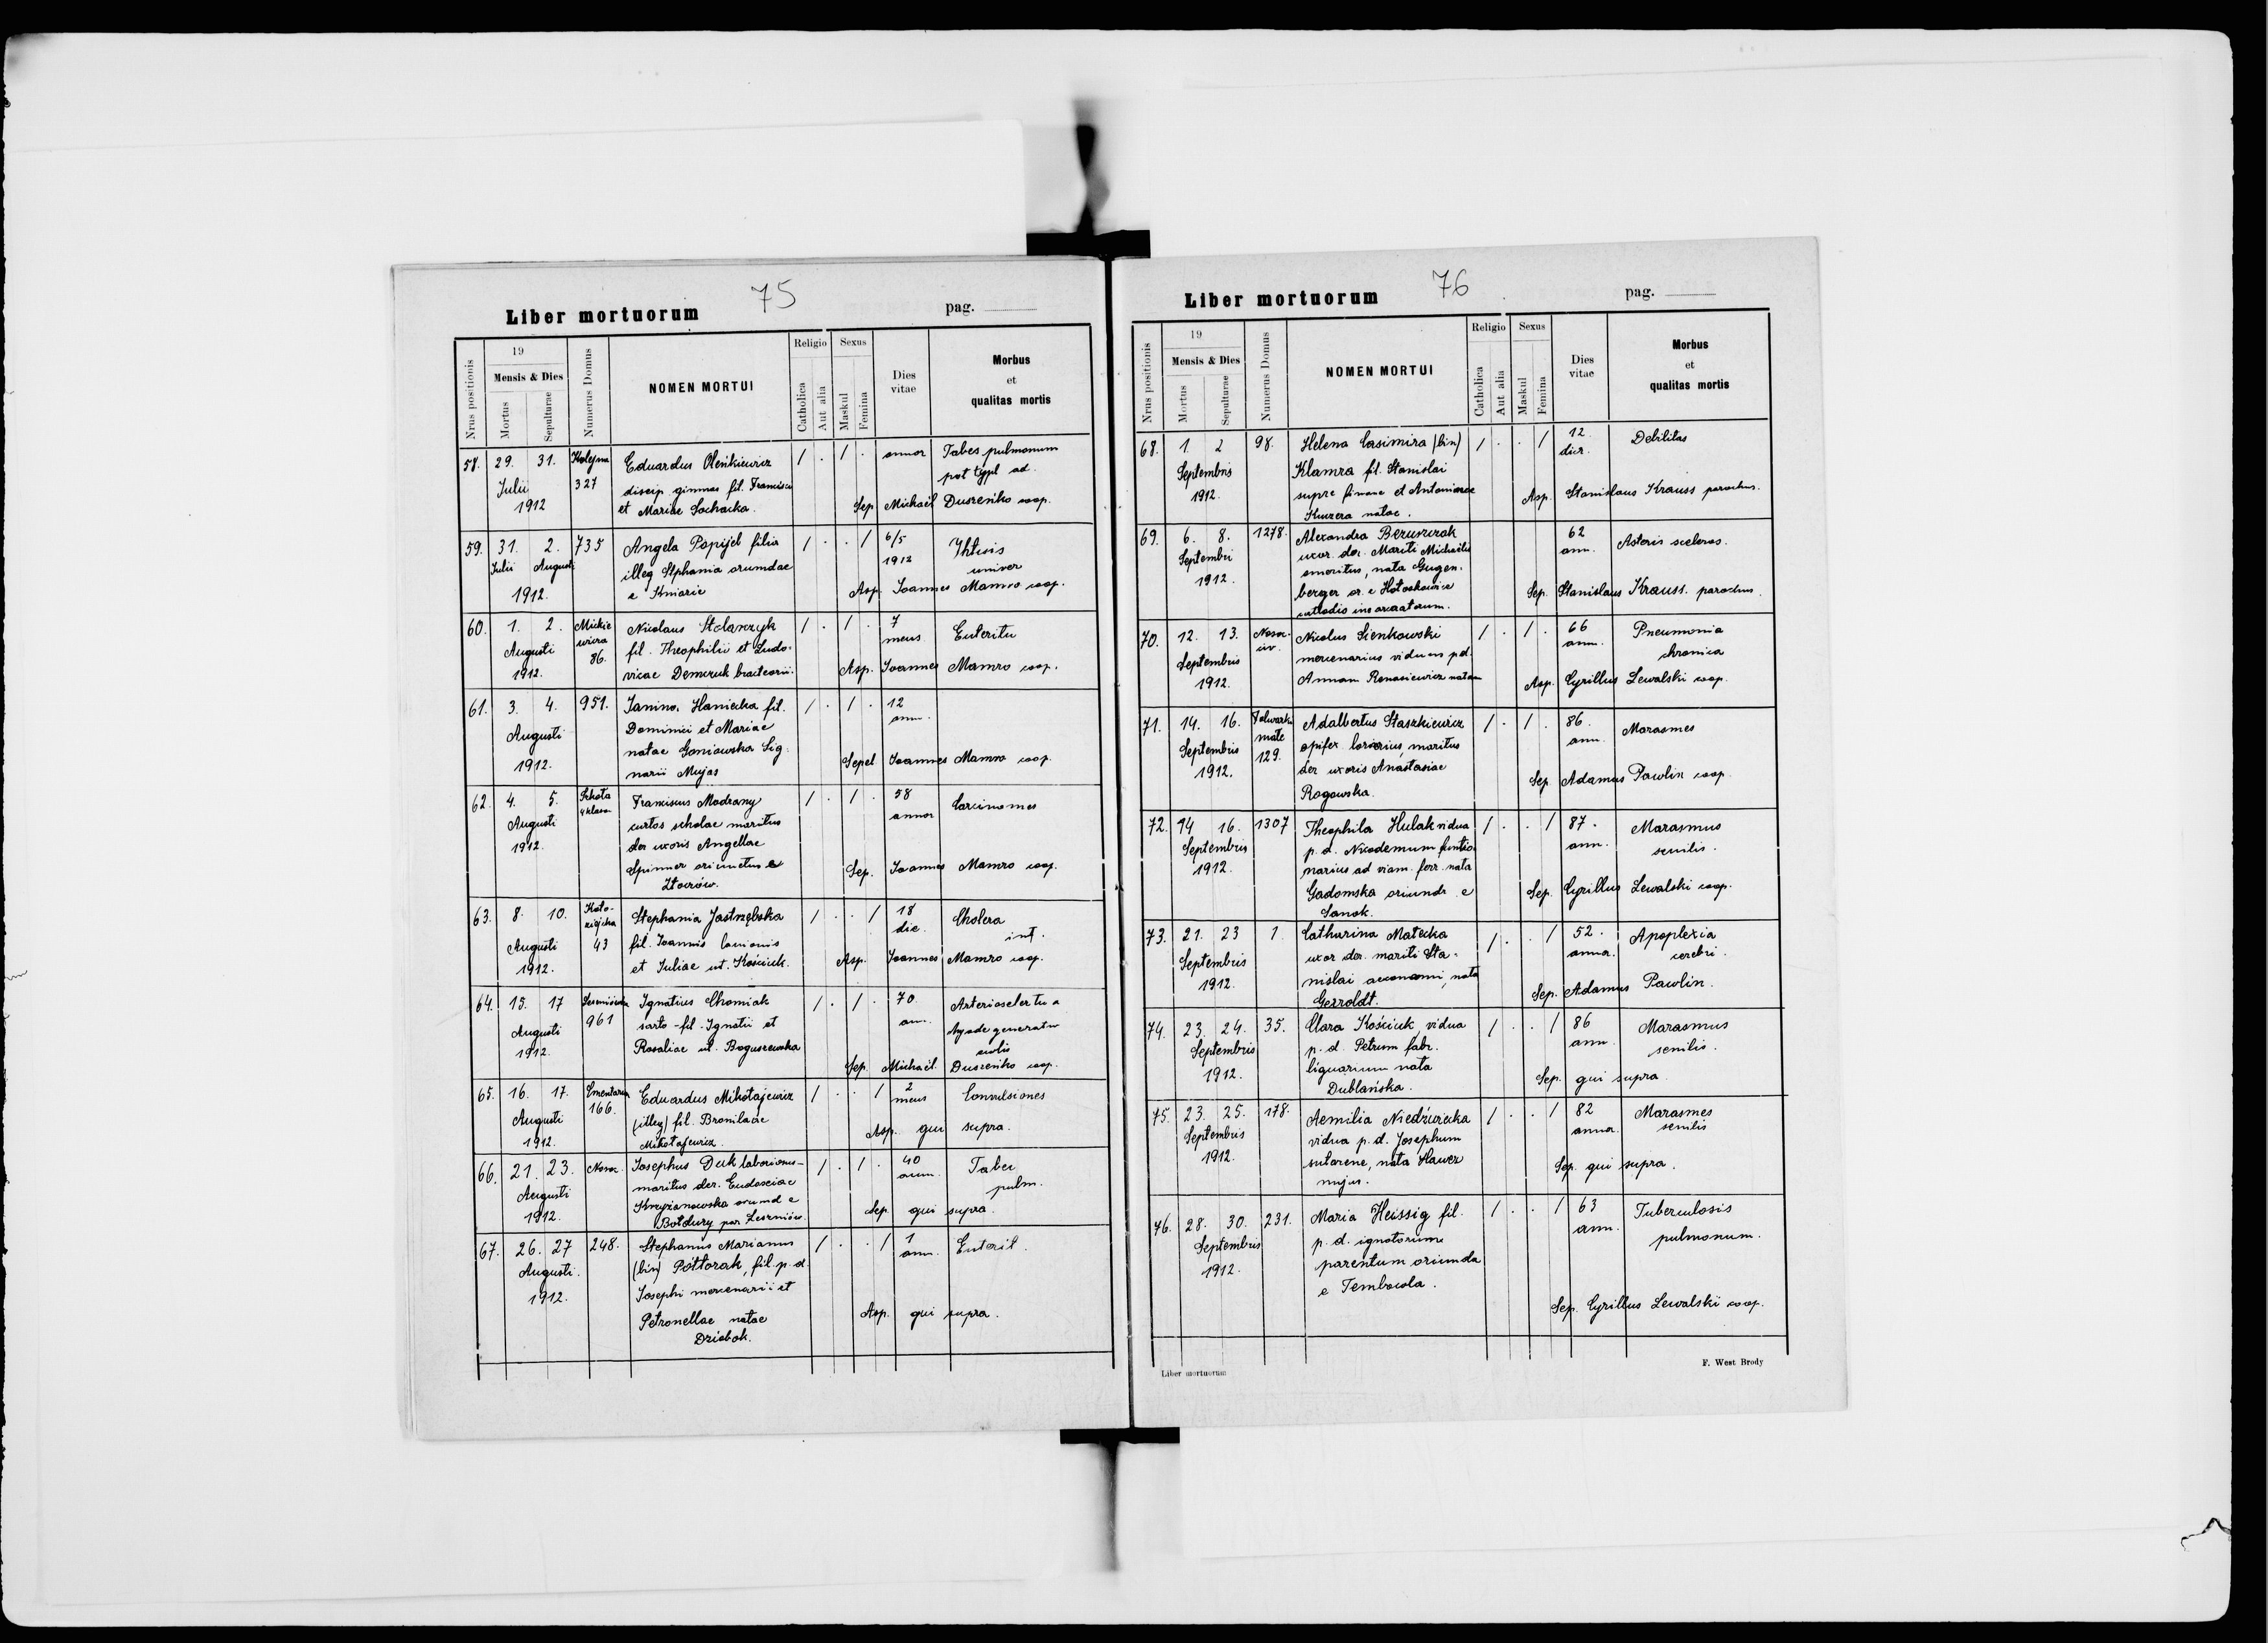 75
Liber mortuorum pag.
Nrus positionis
19
Mensis & Dies
Mortus
Sepulturae
Numerus Domus
NOMEN MORTUI
Religio
Catholica
Aut alia
Sexus
Maskul
Femina
Dies vitae
Morbus
et
qualitas mortis
58. 29. 31. Kolejowa Eduardus Oleńkiewicz / . / . annor Tabes pulmonum
Julii 327 discip. gimnas fil. Francisci pot typl ad.
1912 et Mariae Sochacka. Sep. Michaël Duszeńko coop.
59. 31. 2. 735 Angela Popijel filia / . . / 6/5 Yhtisis
Julii Augusti illeg Stphania orumdae 1912 univer
1912. e Kniarie Asp. Joannes Mamro coop.
60. 1. 2. Mickie Nicolaus Stolarczyk / . / . 7 Enteritu
Augusti wicza fil. Theophilii et Ludo- mens
1912. 86. vicae Demczuk bractearii. Asp. Joannes Mamro coop.
61. 3. 4. 951. Janina. Haniecka fil. / . / . 12
Augusti Dominici et Mariae ann.
natae Goniowska Lig-
1912. narii Mujas Sepel Joannes Mamro coop.
62. 4. 5. Szkoła Franciscus Modrany / . / . 58 Carcinomes
Augusti 4 klasow curtos scholae maritus annor
1912. der uxoris Angellae
Spinner oriunctus e Sep. Joannes Mamro coop.
Złoczów.
63. 8. 10. Stephania Jastrzębska / . . / 18 Cholera
Augusti 43 fil. Joannis lanionis die. inf.
1912. et Juliae ut. Kościuk. Asp. Joannes Mamro coop.
64. 15. 17 Ignatius Chomiak / . / . 70. Arterioscler tu a
Augusti 961 sarto-fil. Ignatii et ann.
1912. Rosaliae ul. Boguszewska
Sep. Michaël. Duszeńko coop.
65. 16. 17. Cmentarna Eduardus Mikołajewicz / . . / 2 Convulsiones
Augusti 166. (illeg) fil. Bronilaae mens
1912. Mikołajewicz Asp. qui supra.
66. 21. 23. Nowa. Josephus Duk laborionus- / . / . 40 Taber
Augusti maritus der. Eudoxiae ann. pulm.
1912. Krzyżanowska orumd e Sep. qui supra.
Bołdury par Leszniów.
67. 26. 27 248. Stephanus Marianus / . . / 1 Enterit.
Augusti. (bin) Połtorak, fil. p. d. ann.
1912. Josephi mercenarii et
Petronellae natae Asp. qui supra.
Dziobok.
76
Liber mortuorum pag.
Nrus positionis
19
Mensis & Dies
Mortus
Sepulturae
Numerus Domus
NOMEN MORTUI
Religio
Catholica
Aut alia
Sexus
Maskul
Femina
Dies vitae
Morbus
et
qualitas mortis
68. 1. 2 98. Helena Casimira (bin) / . . / 12 Debilitas
Septembris Klamra fil. Stanislai dier.
1912. supre et Antoninae Asp. Stanislaus Krauss parochus.
Kuczera natae.
69. 6. 8. 1278. Alexandra Bezuszczak 62 Asteris scleros.
Septembri uxor. der. Mariti Michaëlis ann.
1912. emeritus, nata Gugen-
berger or. e Hołoskowice Sep. Stanislaus Krauss. parochus.
custodis incarcatorum.
70. 12. 13. Nowo- Nicolus Sienkowski / . / . 66 Pneumonia
Septembris mercenarius viduus pd. ann. chronica
1912. Annam Romasiewicz natam Asp. Cyrillus Lewalski coop.
71. 14. 16. Folwark. Adalbertus Staszkiewicz / . / . 86. Marasmes
Septembris małe opifex lorierius, maritus ann.
1912. 129. der uxoris Anastasiae Sep. Adamus Pawlin coop.
Rogowska.
72. 14 16. 1307 Theophila Hulak vidua / . . / 87. Marasmus
Septembris p. d. Nicodemum funtio- ann. senilis.
1912. narius ad viam. ferr. nata
Gadomska oriundr. e Sep. Cyrillus Lewalski coop.
Sanok.
73. 21. 23 1. Catharina Małecka / . . / 52. Apoplexia
Septembris uxor der. mariti Sta- annor. cerebri.
1912. nislai aeconomi, nata Sep. Adamus Pawlin.
Gerroldt.
74. 23. 24. 35. Clara Kościuk, vidua / . . / 86 Marasmus
Septembris p. d. Petrum fabr. ann. senilis.
1912. liguarium nata Sep. qui supra.
Dublańska.
75. 23. 25. 178. Aemilia Niedźwiecka / . . / 82 Marasmes
Septembris vidua p. d. Josephum annor. senilis
1912. sutorene, nata Hawer Sep. qui supra.
mujus.
76. 28. 30. 231. Maria Heissig fil. / . . / 63 Tuberculosis
Septembris p. d. ignotorum ann. pulmonum.
1912. parentum oriunda
e Tembocola.
Sep. Cyrillus Lewalski coop.
Liber mortuorum
F. West Brody